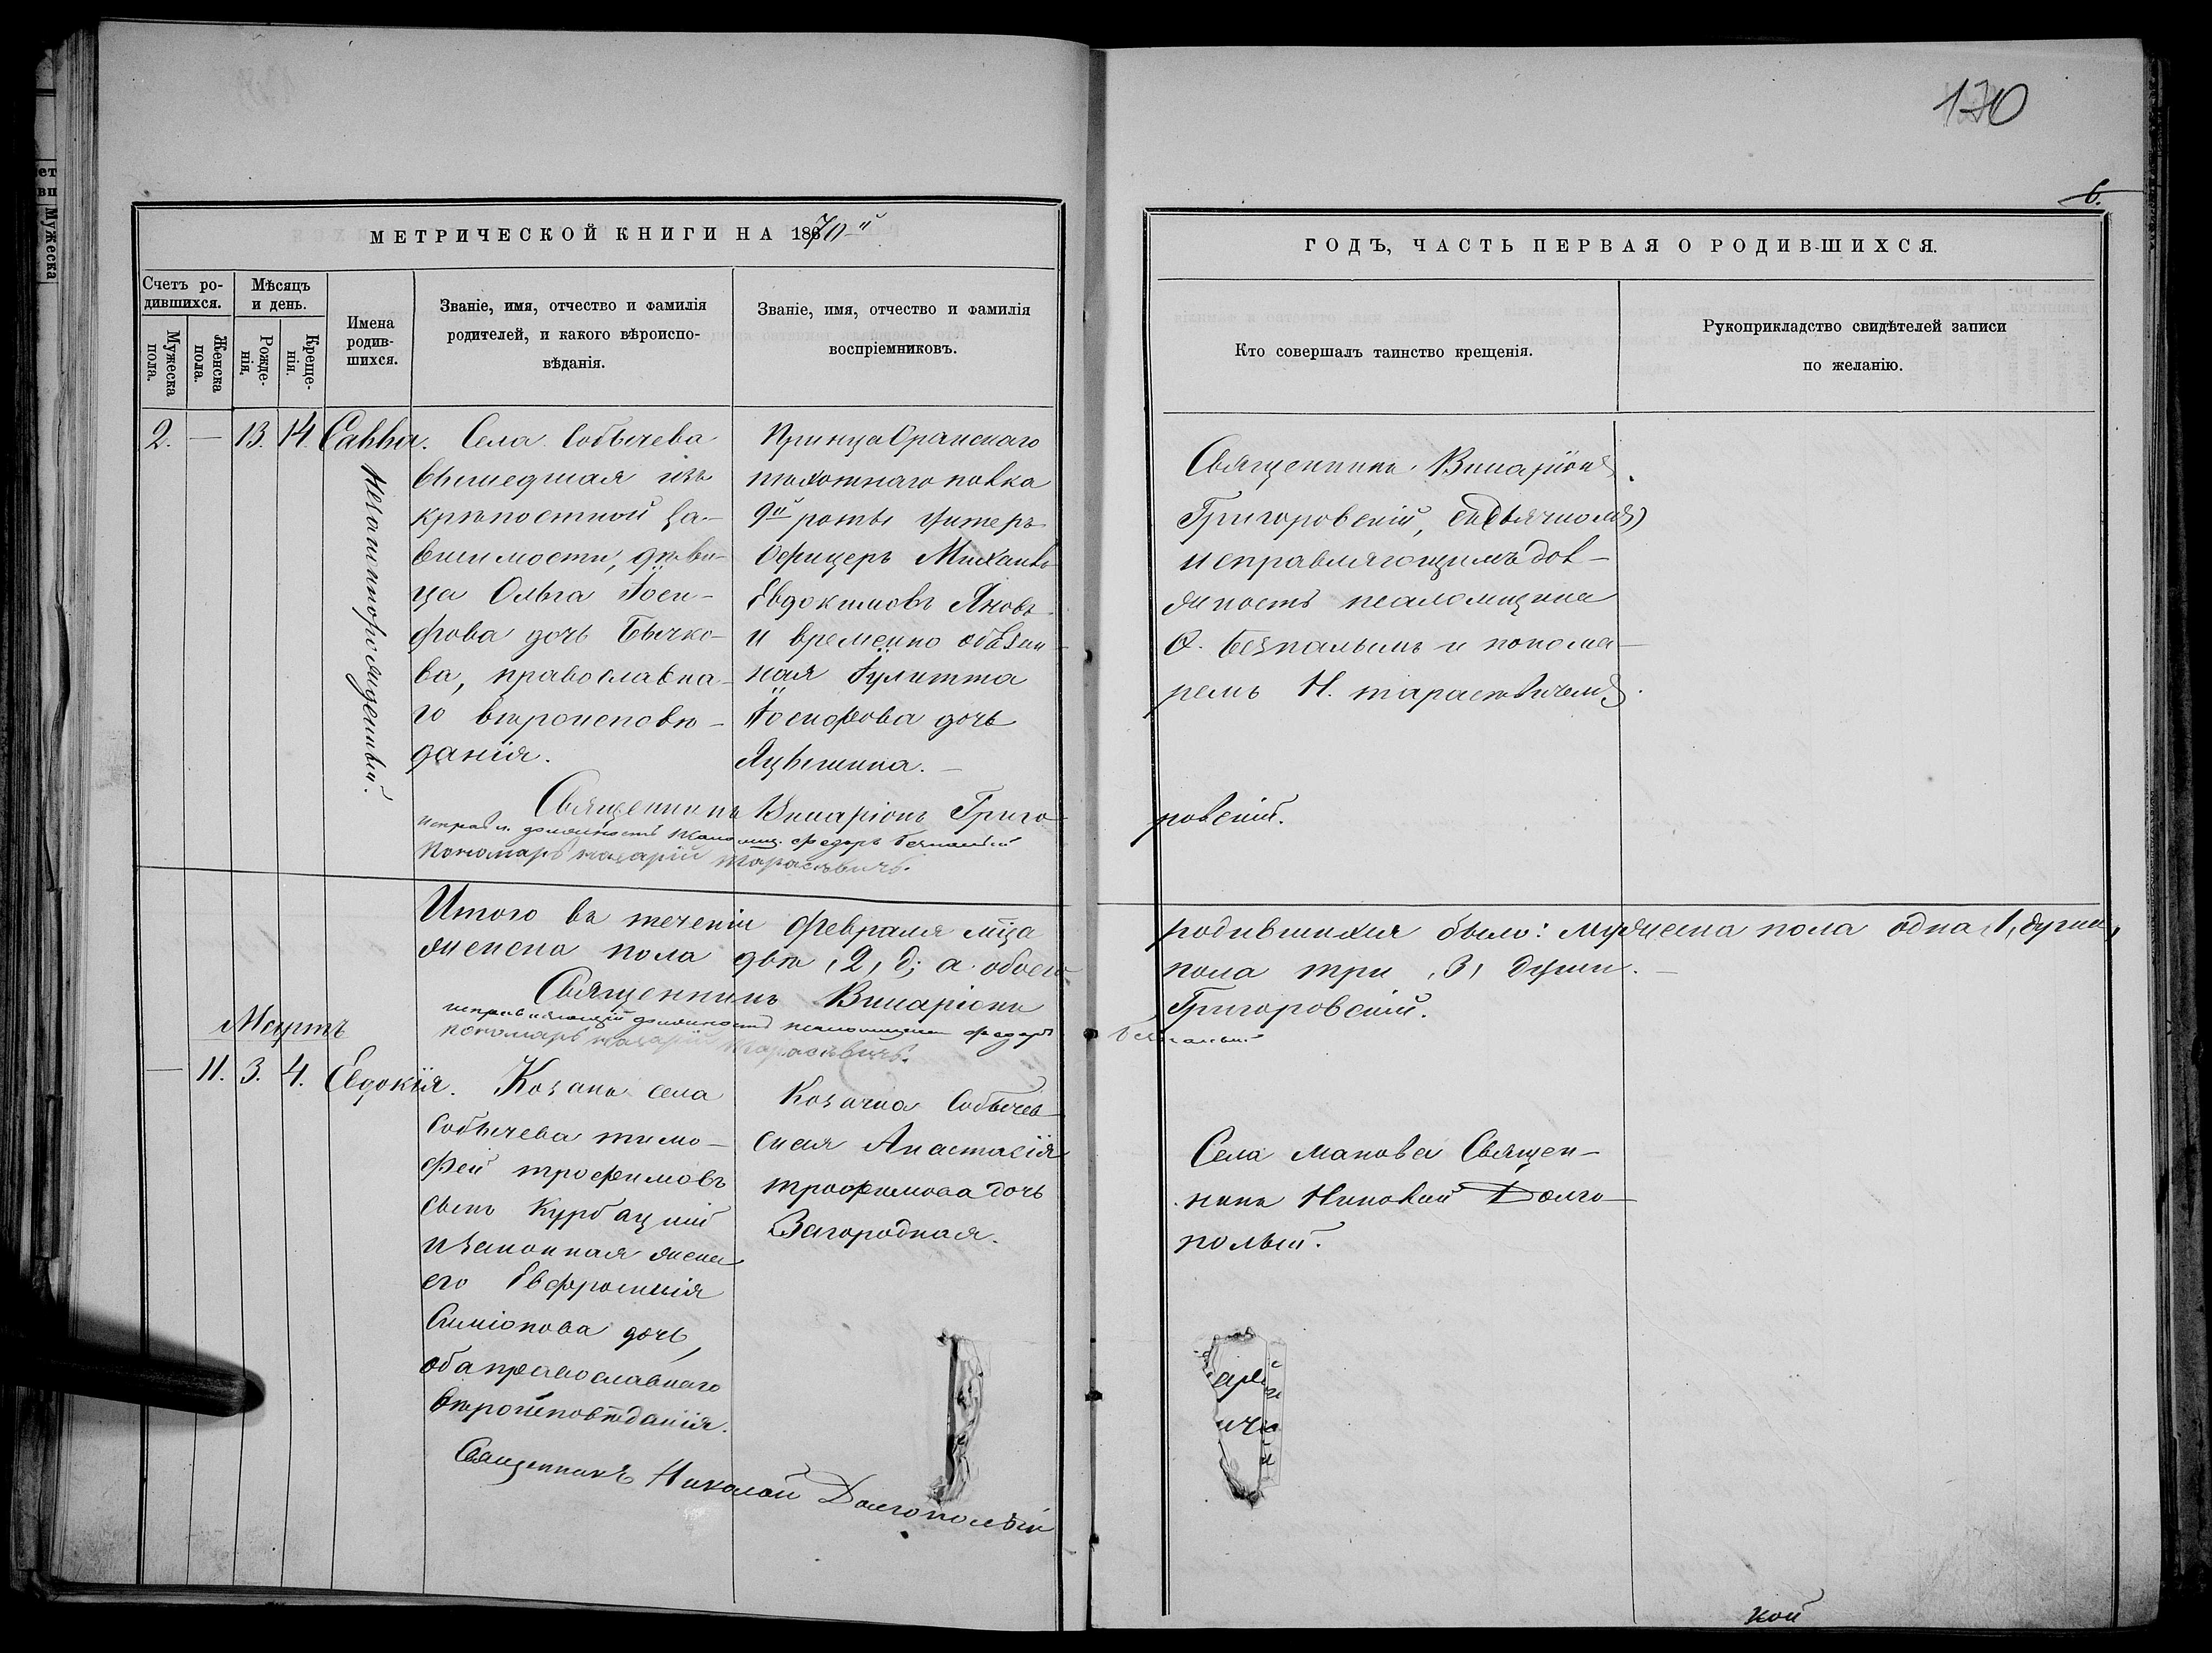 170
6.
МЕТРИЧЕСКОЙ КНИГИ НА 1870й
ГОДЪ, ЧАСТЬ ПЕРВАЯ О РОДИВШИХСЯ.
Счетъ ро-
дившихся.
Мужеска
пола.
Женска
пола.
Мѣсяцъ
и день.
Рожде-
нія.
Креще-
нія.
Имена
родив-
шихся.
Званіе, имя, отчество и фамилія
родителей, и какого вѣроиспо-
вѣданія.
Званіе, имя, отчество и фамилія
воспріемниковъ.
Кто совершалъ таинство крещенія.
Рукоприкладство свидѣтелей записи
по желанію.
2. — 13. 14. Савва.
Незаконнорожденный.
Села Собычева
вышедшая изъ
крѣпостной за-
висимости, дѣви-
ца Ольга Іоси-
фова дочь Бычко-
ва, православна-
го вѣроисповѣ-
данія.
Принца Оранскаго
пѣхотнаго полка
9й роты унтеръ
Офицеръ Михаилъ
Евдокимовъ Яновъ
и временно обязан-
ная Іулитта
Іосифова дочь
Яцынина.
Священникъ Иларіонъ
Григоровскій, съ дьячкомъ
исправляющимъ дол-
жность псаломщика
Ѳ. Безпалымъ и понома-
ремъ Н. Тарасѣвичемъ.
Священникъ Иларіонъ Григо-
ровскій.
исправл. должность псаломщ. Федоръ Безпалый
Пономарь Назарій Тарасѣвичъ.
Итого въ теченіи Февраля мѣца родившихся было: мужеска пола одна, 1, душа,
женска пола двѣ, 2, д; а обоего пола три, 3, души.
Священникъ Иларіонъ Григоровскій.
исправляющій должность псаломщика Федоръ Безпалый
пономарь Назарій Тарасѣвичъ.
Мартъ
— 11. 3. 4. Евдокія.
Козакъ села
Собычева Тимо-
фей Трофимовъ
сынъ Курбацкій
и законная жена
его Евфросинія
Симіонова дочь,
оба православнаго
вѣроисповѣданія.
Козачка Собычев-
ская Анастасія
Трофимова дочь
Загородная.
Села Макова Священ-
никъ Николай Долго-
полый.
Священникъ Николай Долгополый
кой